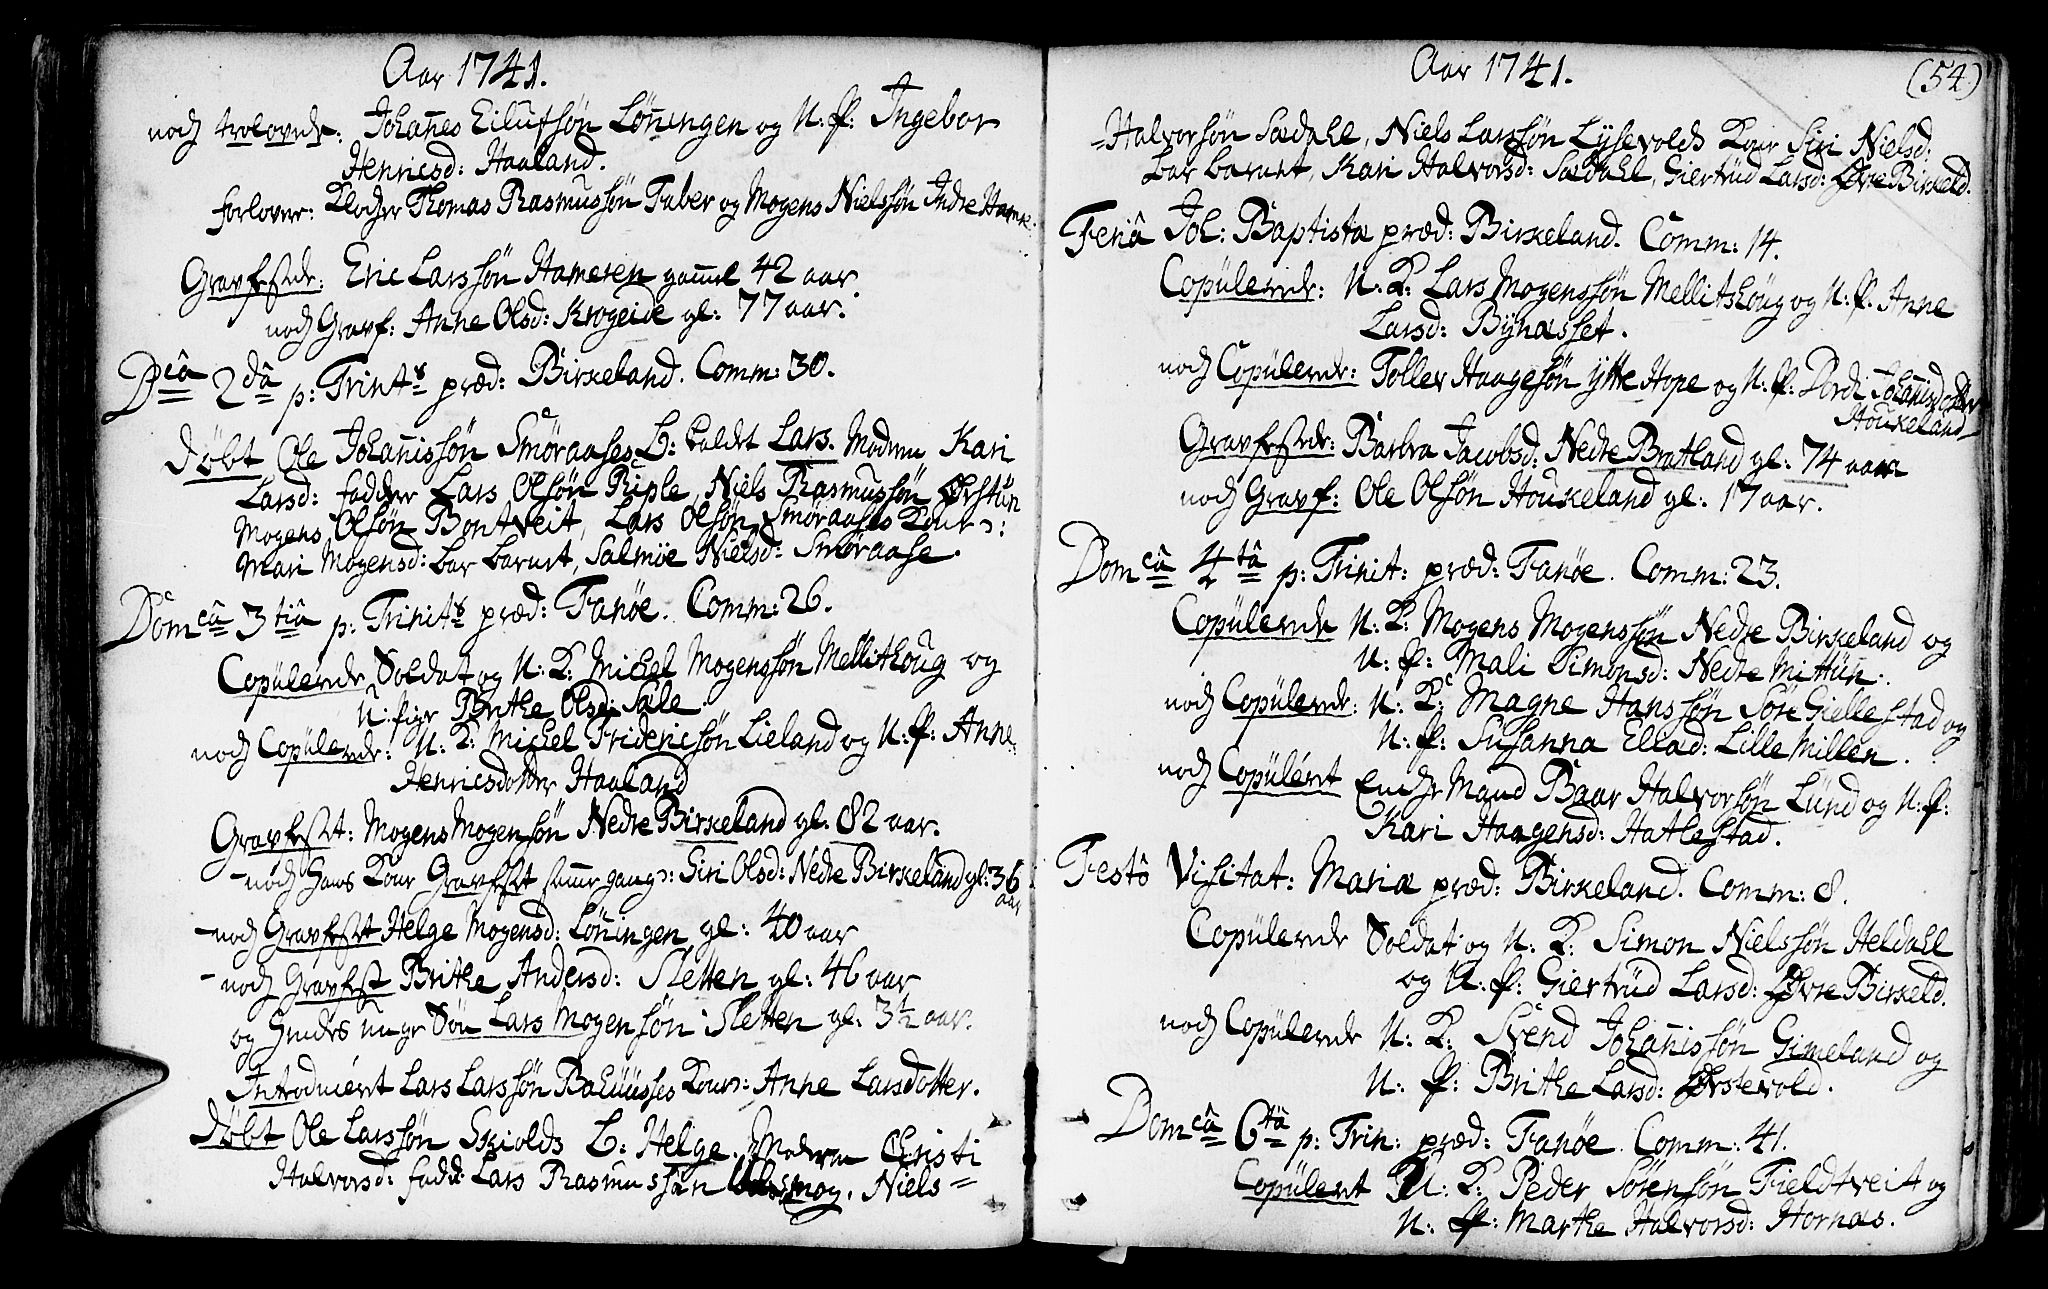 Aar 1741.
nock trolovede: Johañes Eilufsøn Løningen og U: P: Ingebor
Henricsd: Haaland.
forlover: Klocher Thomas Rasmussøn Faber og Mogens Nielssøn Indre Hame:
Gravfestede: Eric Larssøn Hameren gam̄el 42 aar
nock Gravf: Anne Olsd: Krogeide gl: 77 aar.
Dcâ 2dâ p: Trinit: præd: Birkeland. Comm: 30.
Døbt Ole Johañissøn Smøraases B: kaldet Lars. Modren Kari
Larsd: fadder Lars Olsøn Riple, Niels Rasmussøn Øvstün
Mogens Olsøn Bontveit, Lars Olsøn Smøraases Kone:
Mari Mogensd: bar barnet, Salmöe Nielsd: Smøraase.
Domcâ 3tiâ p: Trinit: præd: Fanöe. Comm: 26.
Copülerede Soldat og U: K: Michel Mogenssøn Mellithoug og
U: pige Brithe Olsd: Sæle.
nock Copülerede: U: K: Michel Fridericsøn Lieland og U: P: Anne
Henricsdotter Haaland
Gravfestet: Mogens Mogensøn Nedre Birkeland gl. 82 aar.
- nock hans Kone Gravfestet sam̄e gang: Siri Olsd: Nedre Birkeland gl: 36
aar
- nock Gravfestet Helge Mogensd: Løningen gl: 40 aar
- nock Gravfest Brithe Andersd: Sletten gl: 46 aar
og hendes unge Søn Lars Mogensøn Sletten gl: 3½ aar.
Introduceret Lars Larssøn Kone: Anne Larsdotter.
Døbt Ole Larssøn Skiolds B: Helge. Moderen Christi
Halvorsd: fadd: Lars Rasmussøn Niels=
Aar 1741.
(54)
=Halvorsøn Sædahl, Niels Larssøn Lysevolds Kone Siri Nielsd:
bar barnet, Kari Halvorsd: Sædahl, Giertrüd Larsd: Øvre Birkeld.
Feriâ Joh: Baptistæ præd: Birkeland. Comm: 14.
Copülerede: U. K: Lars Mogenssøn Mellitshoug og U: P. Anne
Larsd: Bÿnæsset.
nock Copülerede: Tollev Haagesøn ÿtte Hope og U: P: Dordi Johañisdotter
Houkeland
Gravfestede: Barbra Jacobsd: Nedre Bratland gl: 74 aar
nock Gravf: Ole Olsøn Houkeland gl: 17 aar.
Domcâ 4tâ p: Trinit: præd: Fanöe. Comm: 23.
Copülerede U. K: Mogens Mogenssøn Nedre Birkeland og
U: P: Mali Simonsd: Nedre Mittün.
nock Copülerede: U: K: Magne Hanssøn Söre Giellestad og
U: P: Susanna Ellad: Lille Milten.
nock Copüléret Enche Mand Baar Halvorsøn Lünd og U: P:
Kari Haagensd: Hatlestad.
Festô Visitat: Mariæ præd: Birkeland. Comm: 8.
Copülerede Soldat og U: K: Simon Nielssøn Heldahl
og U: P: Giertrüd Larsd: Øvre Birkeld.
nock Copülerede U: K: Svend Johañissøn Gimeland og
U: P: Brithe Larsd: Ørstevold.
Domcâ 6tâ p: Trin: præd: Fanöe. Comm: 41.
Copüleret U: K: Peder Sörensøn Fieldtveit og
U: P: Marthe Halvorsd: Hornæs.